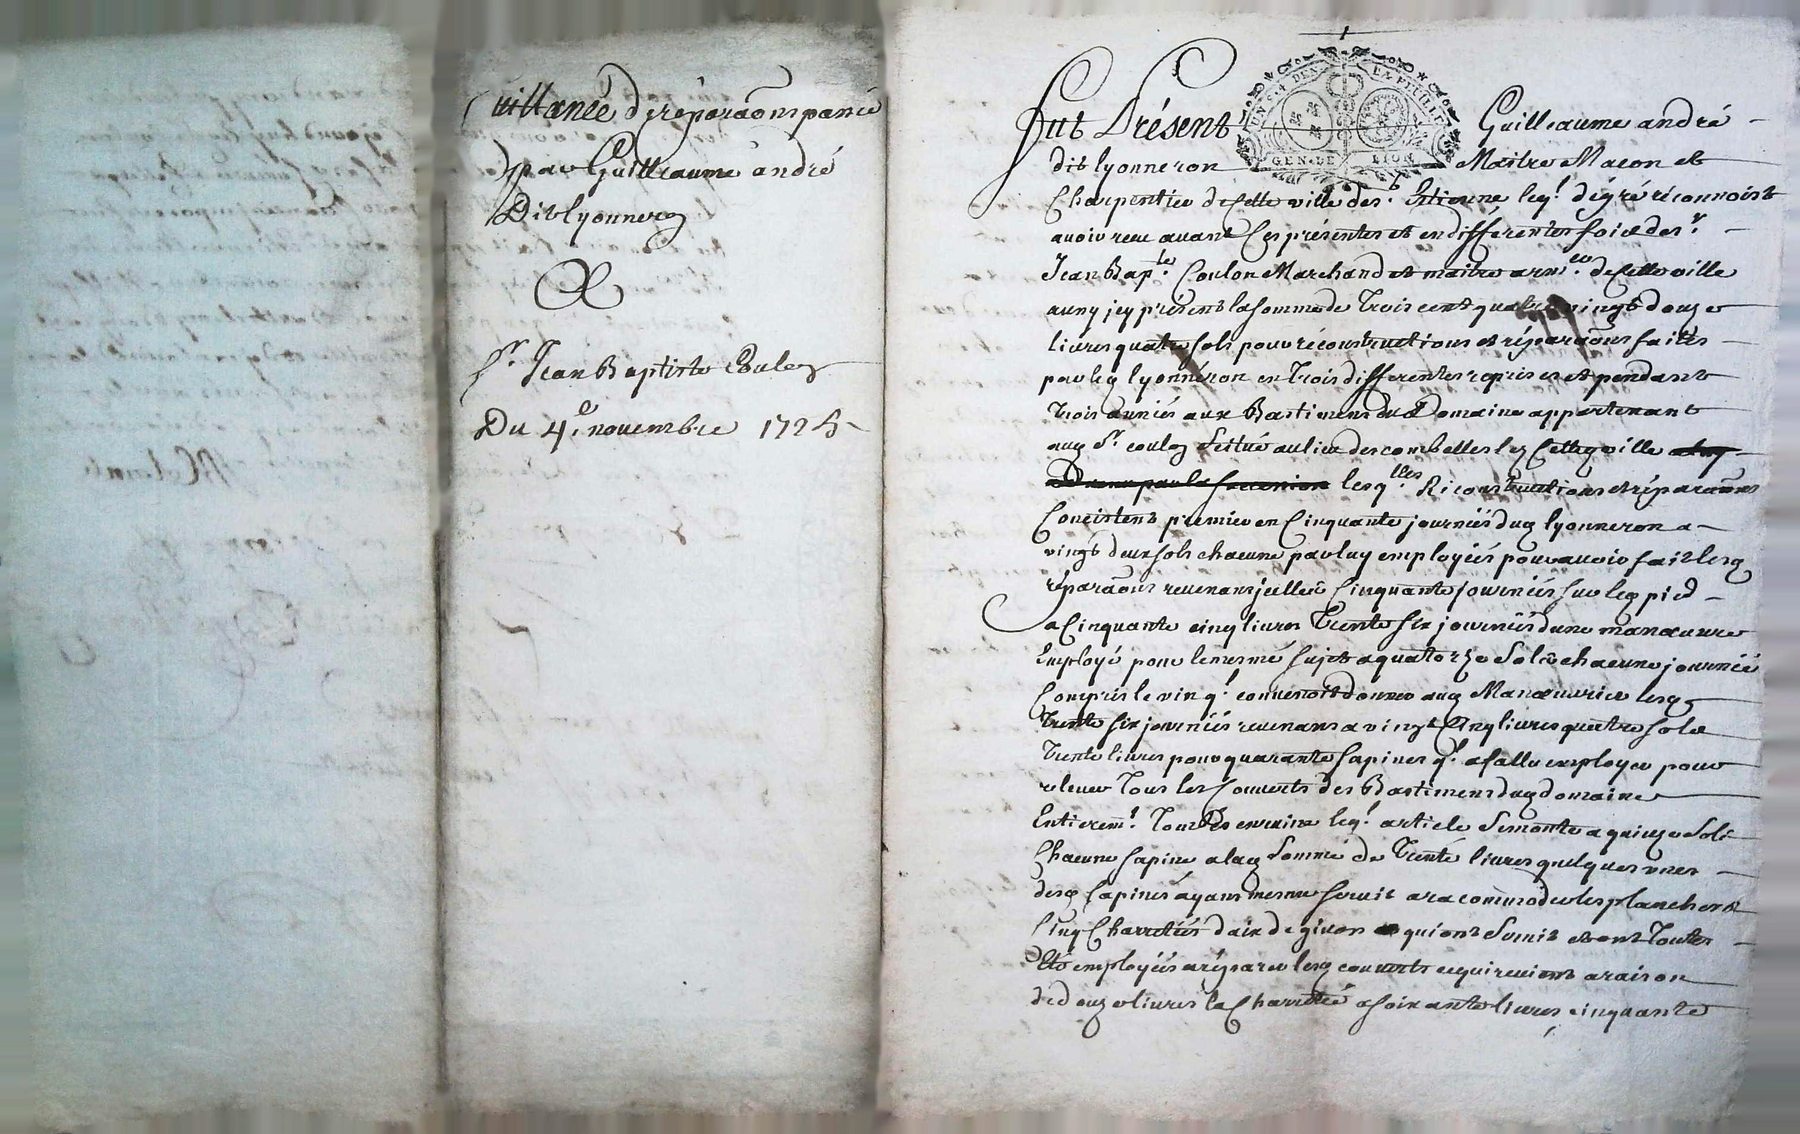 Quittance de réparaõns passée
par Guilleaume andré
Dit lyonneron
A
Sr. Jean Baptiste Coulon
Du 4e. novembre 1725
UN SOL DEN LA FEUILLE
GEN DE LION
Fut Présent Guilleaume andré
dit lyonneron Maitre Macon et
Charpentier de cette ville de st. Etienne leql. de gré réconnoist
avoir receu avant ces présentes et en différentes fois de sr.
Jean Bapte. Coulon Marchand et maitre armeur. de cette ville
a uny icy présent la somme de Trois cent quatre vingt douze
livres quatre sols pour réconstructions et réparaõns faites
par led lyonneron en Trois differentes reprises et pendant
Trois années aux Bastimens du Domaine appartenant
aud sr coulon scitué au lieu des combelles lez cetted ville
lesqlles Réconstructions et réparaõns
Concistent premier en Cinquante journées dud lyonneron a
vingt deux sols chacune par luy employées pour avoir fait lesd
réparaõns revenans jcelles Cinquante journées sur led pied
a Cinquante cinq livres Trente six journées d'une manœuvre
Employé pour le mesme sujet a quatorze sols chacune journée
Compris le vin ql. convenoit donner aud Manœuvre lesd
Trente six journées revenans a vingt Cinq livres quatre sols
Trente livres pour quarante sapines ql. a fallu employer pour
relever Tous les couverts des Bastimens dud domaine
Entieremt. Tombés en ruine leql. article se monte a quinze sols
Chacune sapine a lad somme de Trente livres quelques unes
desd sapines ayant mesme servit a racommoder les planchers
Cinq Charretées d'aix de qui ont servit et ont Toutes
été employées a réparer lesd couverts a raison
de douze livres la Charretée a soixante livres cinquante